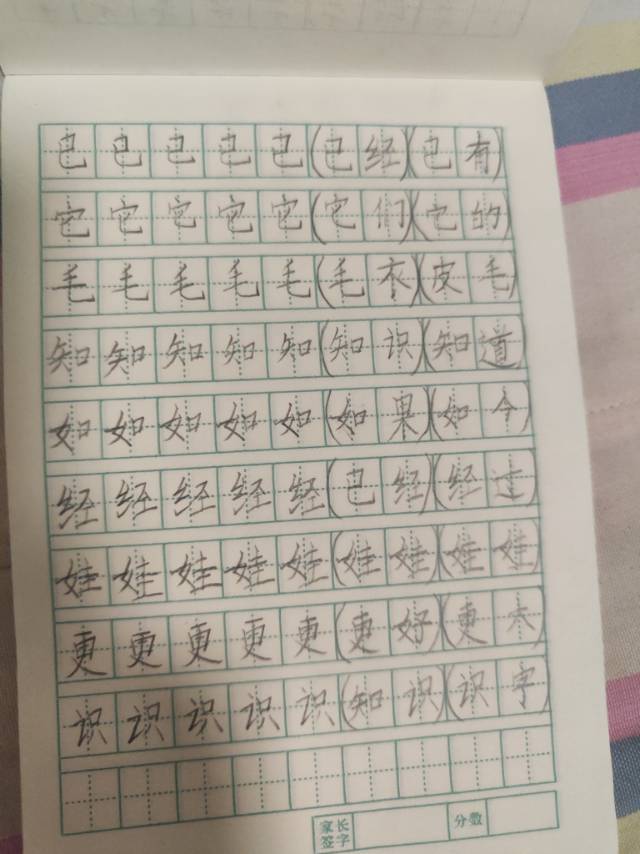 已已已已已(已经)(已有)
它它它它它(它们)(它的)
毛毛毛毛毛(毛衣)(皮毛)
知知知知知(知识)(知道)
如如如如如(如果)(如今)
经经经经经(已经)(经过)
娃娃娃娃娃(娃娃)(娃娃)
更更更更更(更好)(更大)
识识识识识(知识)(识字)
家长签字 分数